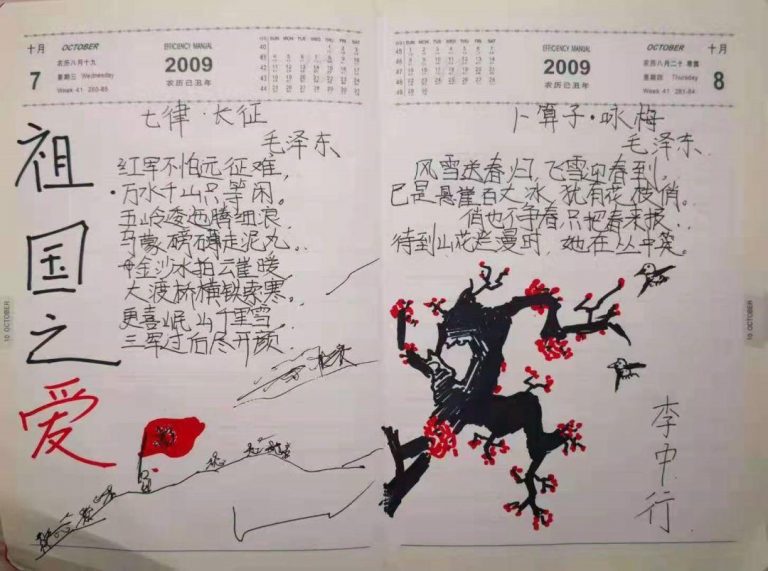 十月 OCTOBER
7
农历八月十九
星期三 Wednesday
Week 41 280-85
EFFICIENCY MANUAL
2009
农历己丑年
SUN MON TUE WED THU FRI SAT
祖国之爱
七律·长征
毛泽东
红军不怕远征难,
万水千山只等闲。
五岭逶迤腾细浪,
乌蒙磅礴走泥丸。
金沙水拍云崖暖,
大渡桥横铁索寒。
更喜岷山千里雪,
三军过后尽开颜
10 OCTOBER
SUN MON TUE WED THU FRI SAT
EFFICIENCY MANUAL
2009
农历己丑年
OCTOBER 十月
农历八月二十 寒露
星期四 Thursday
Week 41 281-84
8
卜算子·咏梅
毛泽东
风雪送春归,飞雪迎春到。
已是悬崖百丈冰,犹有花枝俏。
俏也不争春,只把春来报。
待到山花烂漫时,她在丛中笑。
李中行
10 OCTOBER